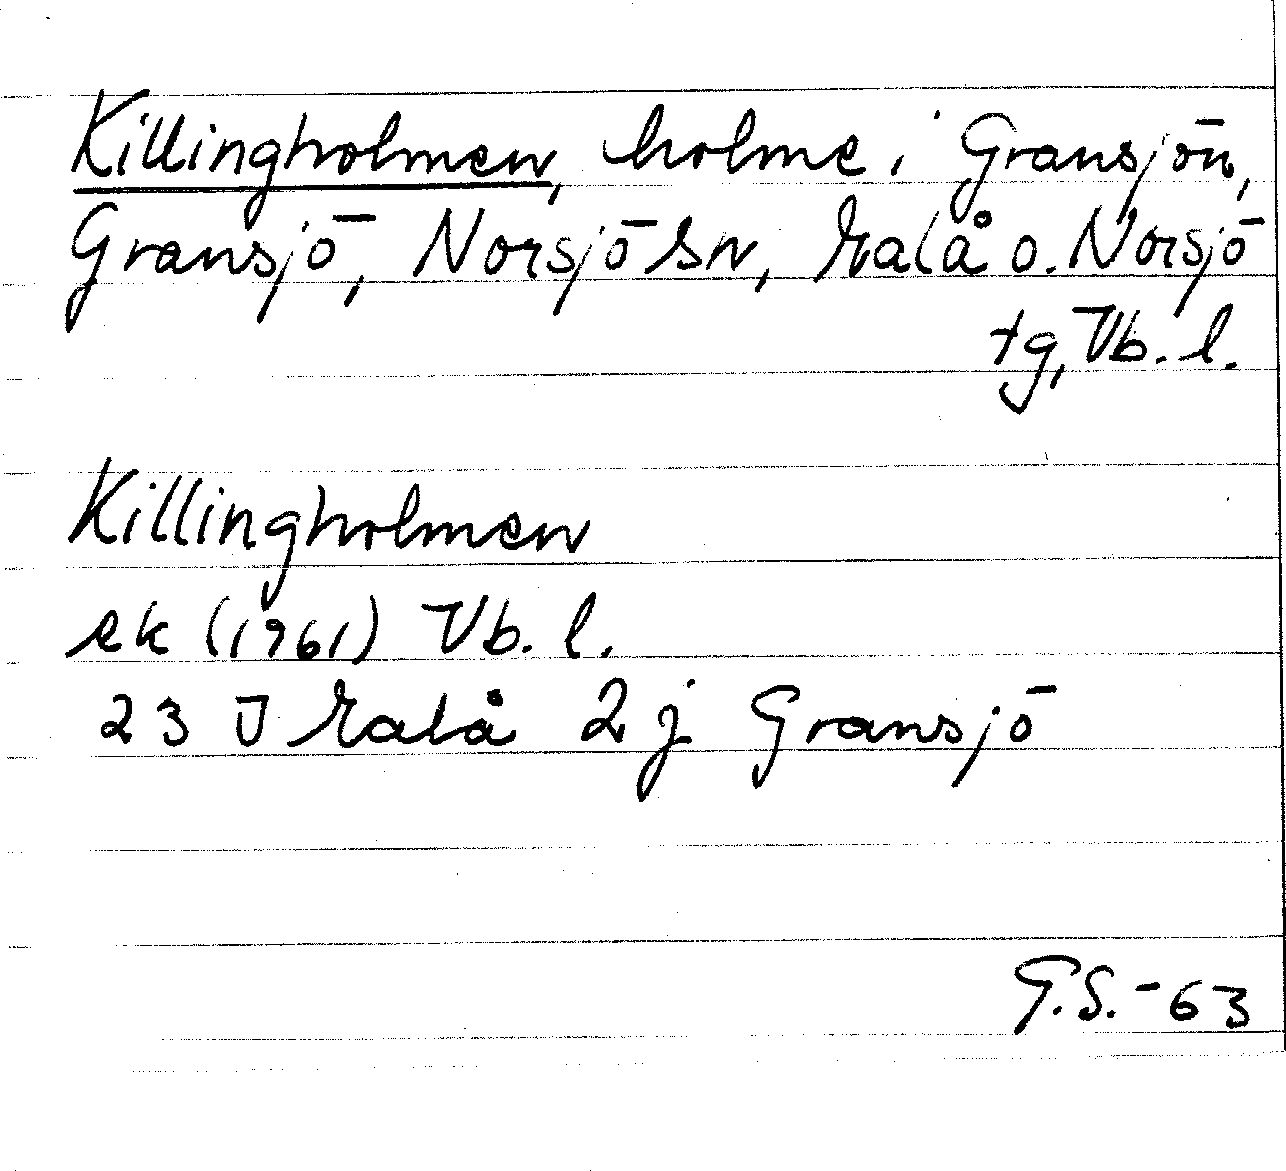 Killingholmen, holme i Gransjön,
Gransjö, Norsjö sn, Malå o. Norsjö
tg, Vb. l.
Killingholmen
ek (1961) Vb. l.
23 J Malå 2j Gransjö
G.S. - 63